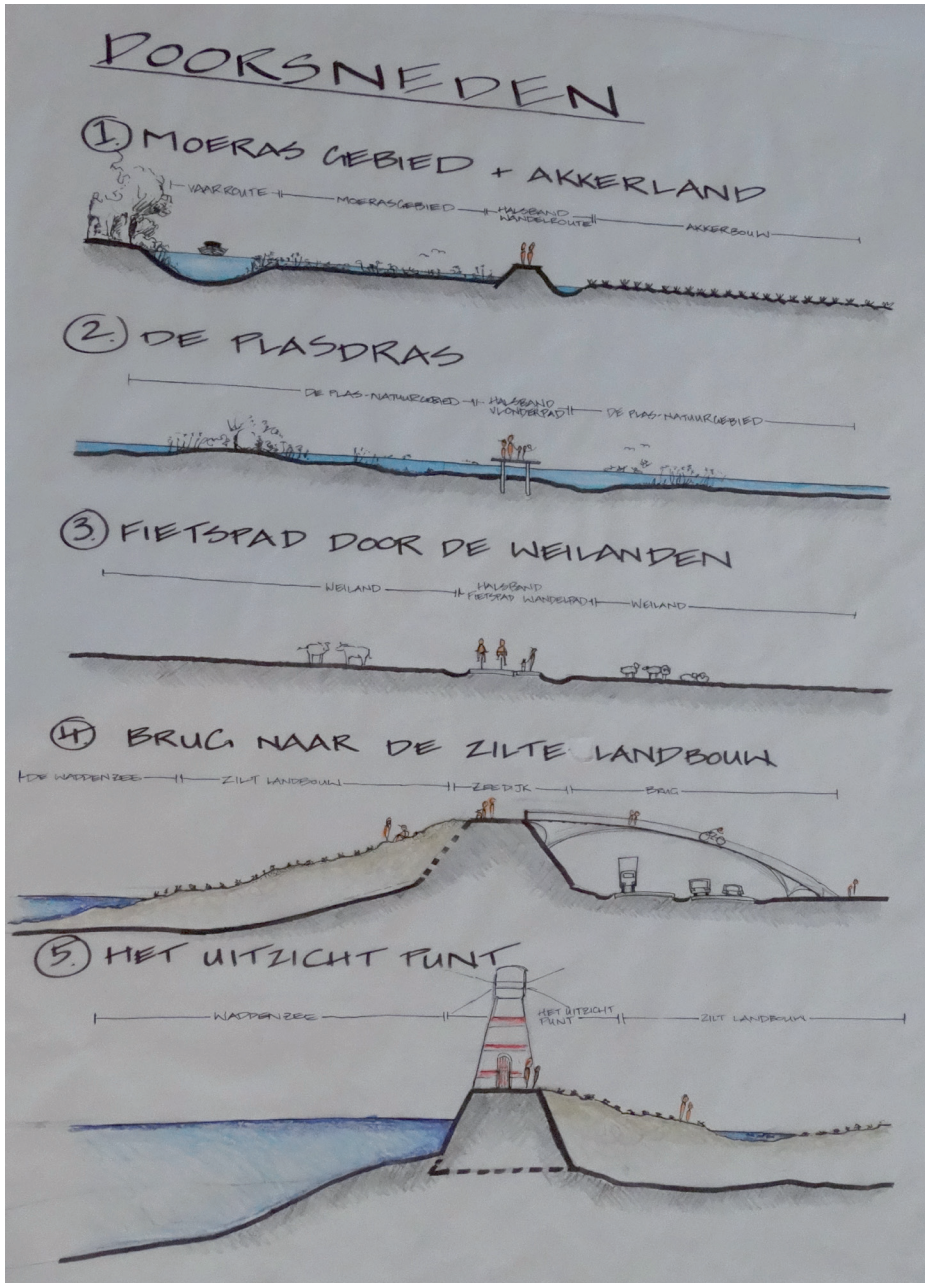 DOORSNEDEN
1. MOERAS GEBIED + AKKERLAND
VAARROUTE
MOERASGEBIED
HALSBAND
WANDELROUTE
AKKERBOUW
2. DE PLASDRAS
DE PLAS-NATUURGEBIED
HALSBAND
VLONDERPAD
DE PLAS-NATUURGEBIED
3. FIETSPAD DOOR DE WEILANDEN
WEILAND
HALSBAND
FIETSPAD WANDELPAD
WEILAND
4. BRUG NAAR DE ZILTE LANDBOUW
DE WADDENZEE
ZILT LANDBOUW
ZEEDIJK
BRUG
5. HET UITZICHT PUNT
WADDENZEE
HET UITZICHT
PUNT
ZILT LANDBOUW